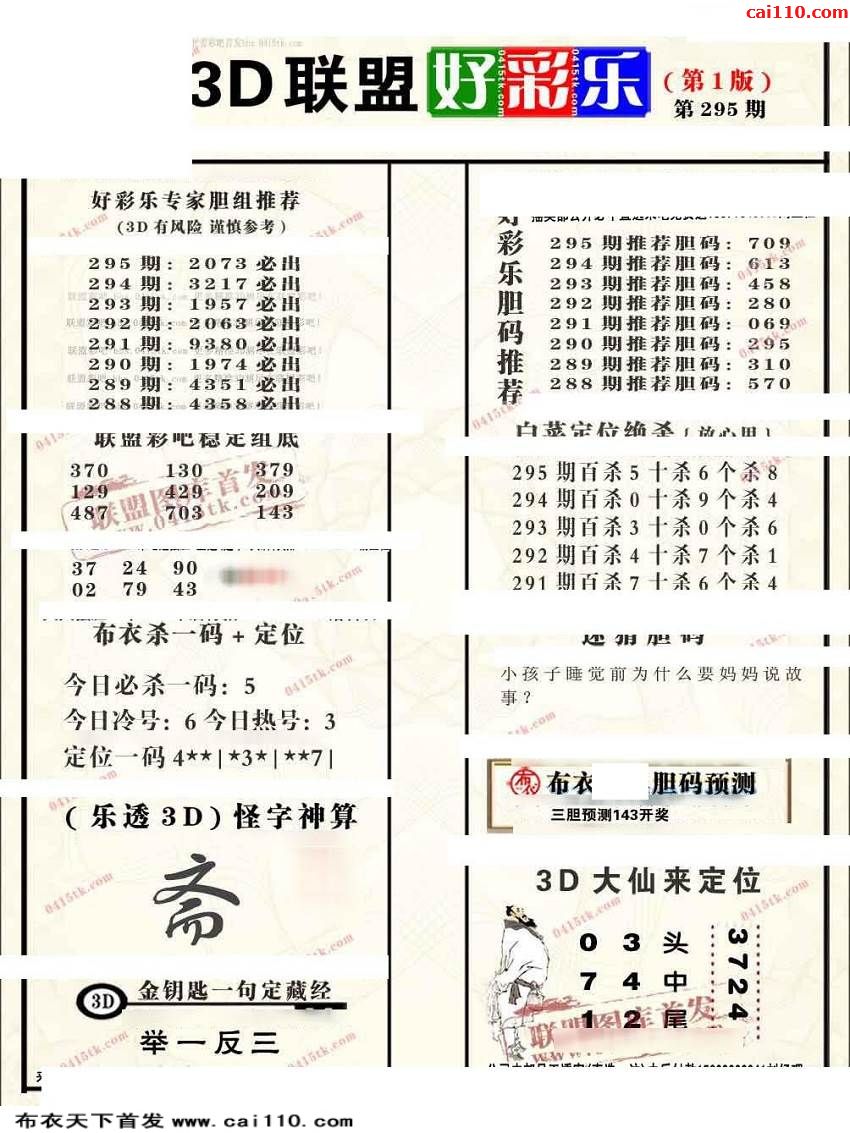 cai110.com
3D联盟好彩乐
(第1版)
第295期
好彩乐专家胆组推荐
(3D有风险 谨慎参考)
295期: 2073必出
294期: 3217必出
293期: 1957必出
292期: 2063必出
291期: 9380必出
290期: 1974必出
289期: 4351必出
288期: 4358必出
联盟彩吧稳定组底
370 130 379
129 429 209
487 703 143
37 24 90
02 79 43
布衣杀一码+定位
今日必杀一码: 5
今日冷号: 6 今日热号: 3
定位一码 4**|*3*|**7|
(乐透3D)怪字神算
斋
3D 金钥匙一句定藏经
举一反三
好彩乐胆码推荐
295期推荐胆码: 709
294期推荐胆码: 613
293期推荐胆码: 458
292期推荐胆码: 280
291期推荐胆码: 069
290期推荐胆码: 295
289期推荐胆码: 310
288期推荐胆码: 570
白菜定位绝杀(放心用)
295期百杀5十杀6个杀8
294期百杀0十杀9个杀4
293期百杀3十杀0个杀6
292期百杀4十杀7个杀1
291期百杀7十杀6个杀4
迷猜胆码
小孩子睡觉前为什么要妈妈说故
事?
布 布衣 胆码预测
三胆预测143开奖
3D大仙来定位
0 3 头
7 4 中
1 2 尾
3724
联盟图库首发
www.0415tk.com
0415tk.com
布衣天下首发 www.cai110.com